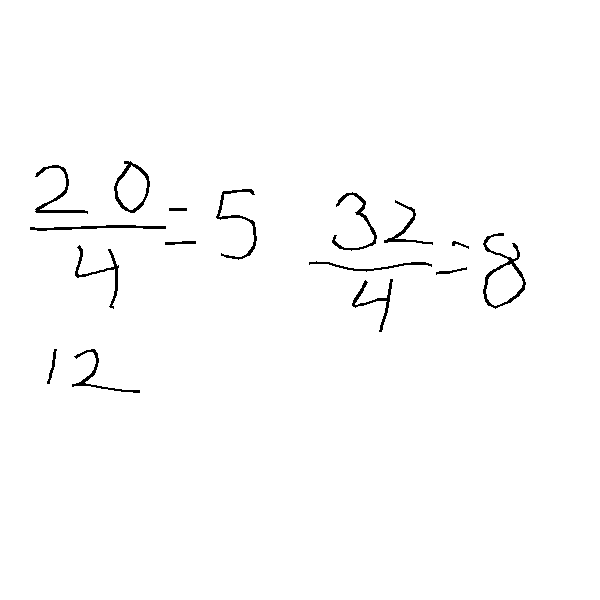 20/4=5 32/4=8
12